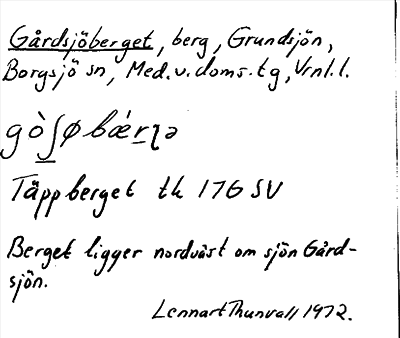 Gårdsjöberget, berg, Grundsjön,
Borgsjö sn, Med. v. doms. tg, Vrnl. l.
gò ʃøbǽrɳə
Täppberget tk 176 SV
Berget ligger nordväst om sjön Gård-
sjön.
Lennart Thunvall 1972.